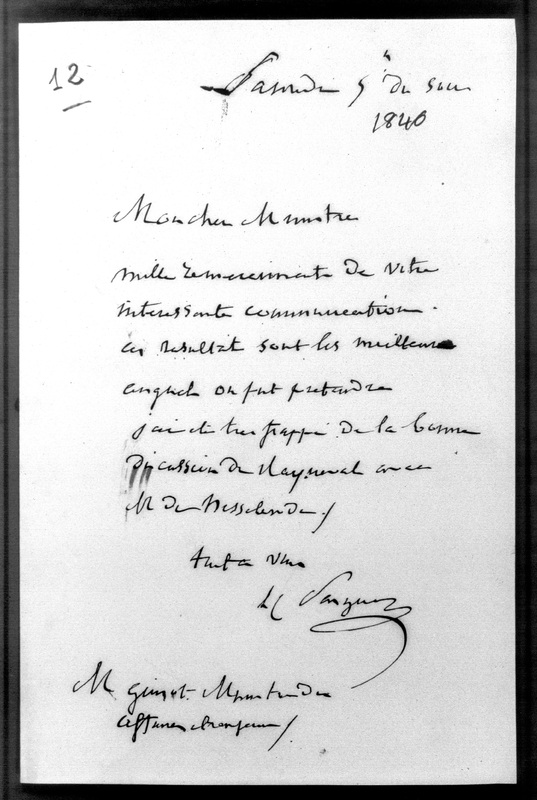 12
5h du soir
1840
Mon cher Ministre
mille remerciments de votre
interessante communication.
ces resultat sont les meilleurs
auquel on put pretendre
j'ai été tres frappé de la bonne
discussion de Rayneval avec
Mr de Nesselrode /
tout a vous
Pasquier
M guizot Ministre des
affaires etrangeres /